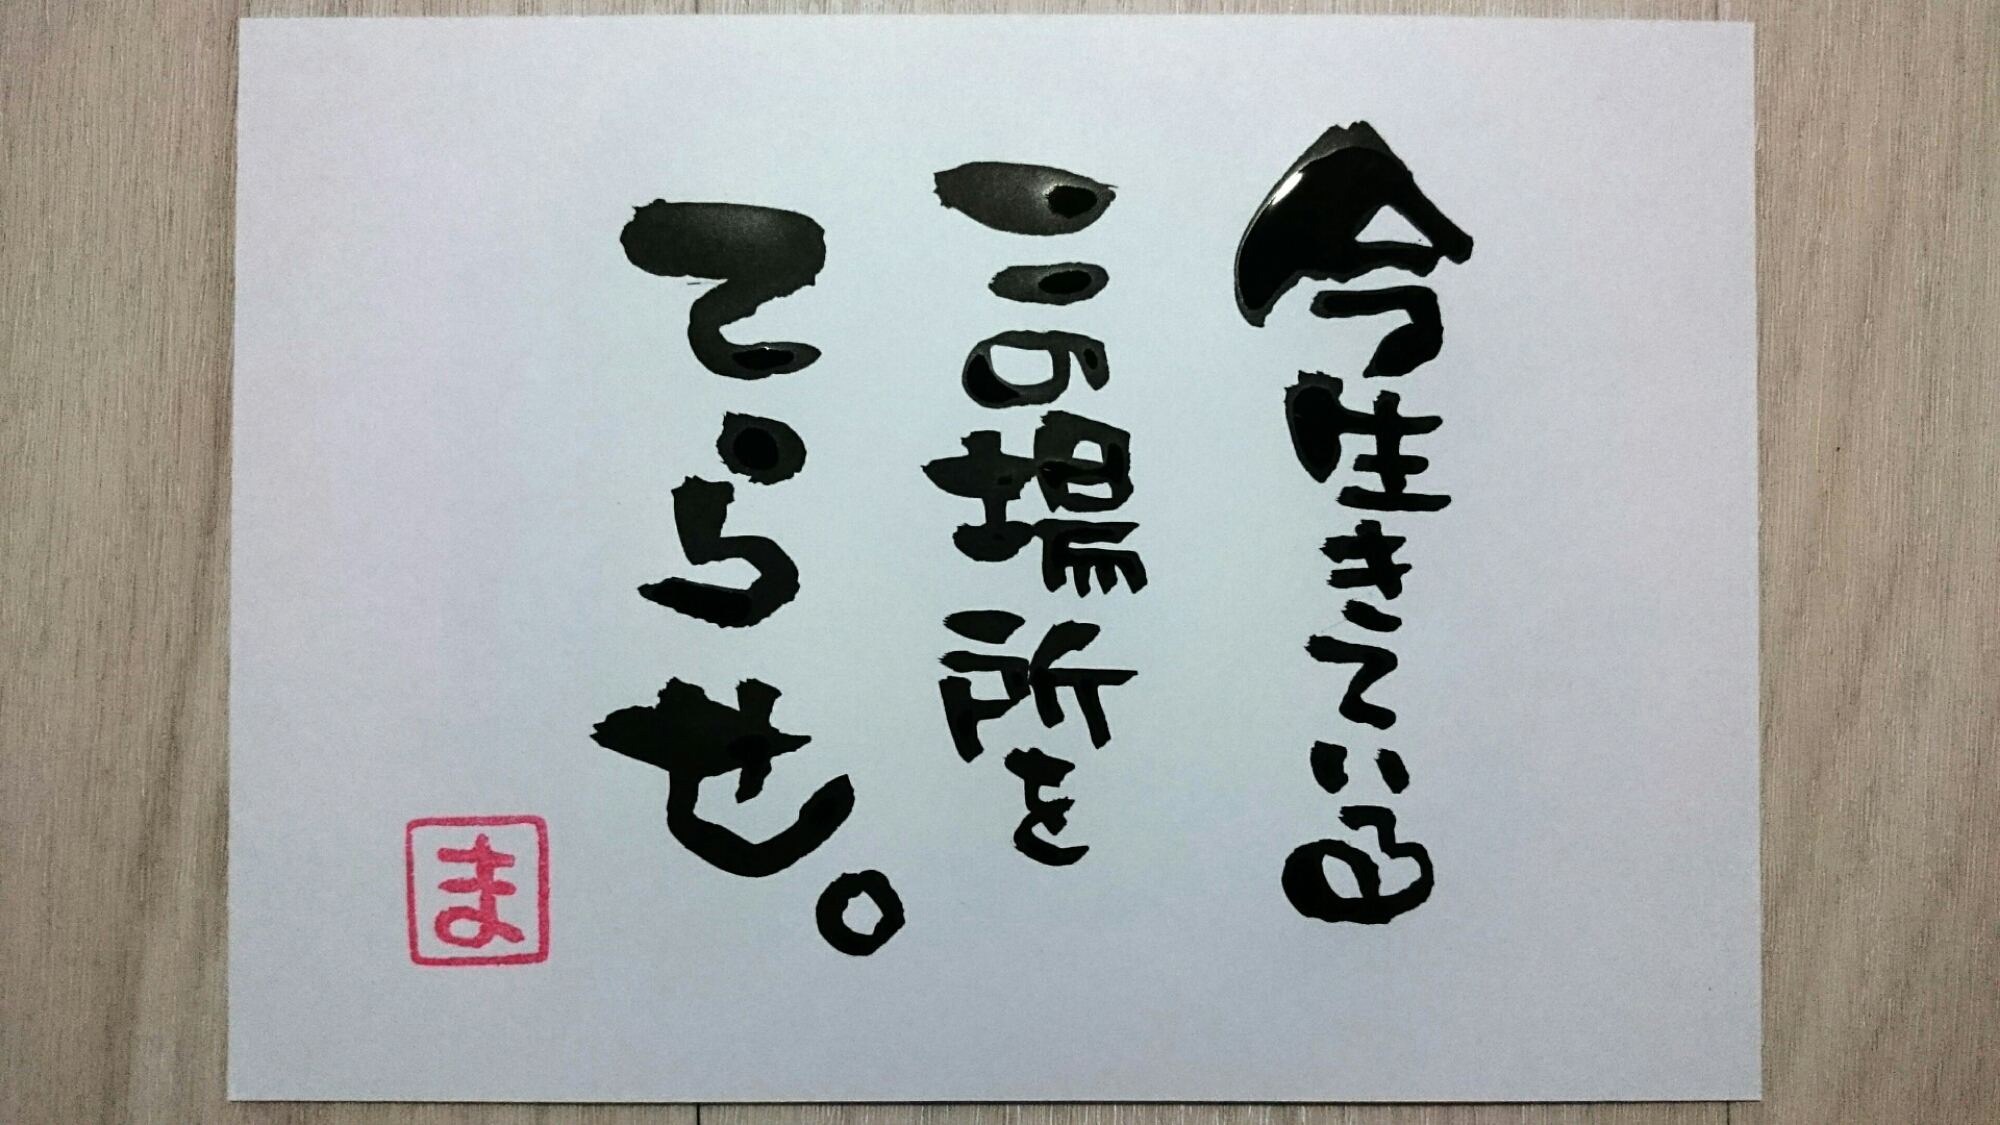 今生きている
この場所を
てらせ。
ま